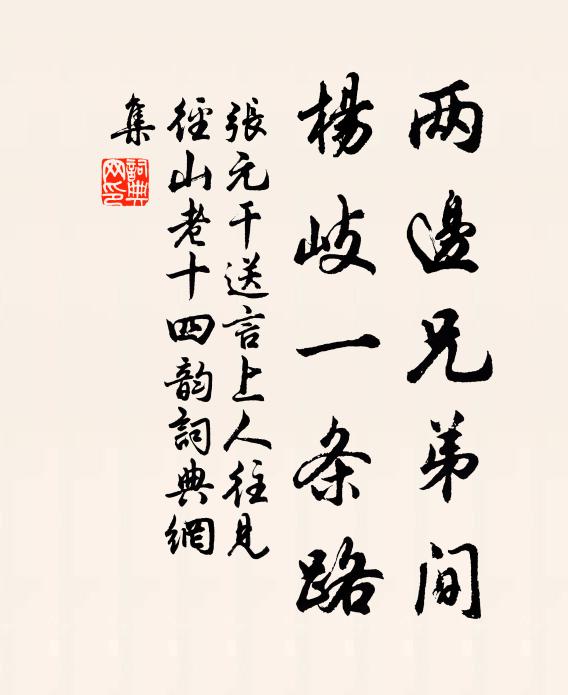 两邊兄弟间
楊岐一条路
張元干送言上人往見
徑山老十四韵詞典網
集
詞典
网印